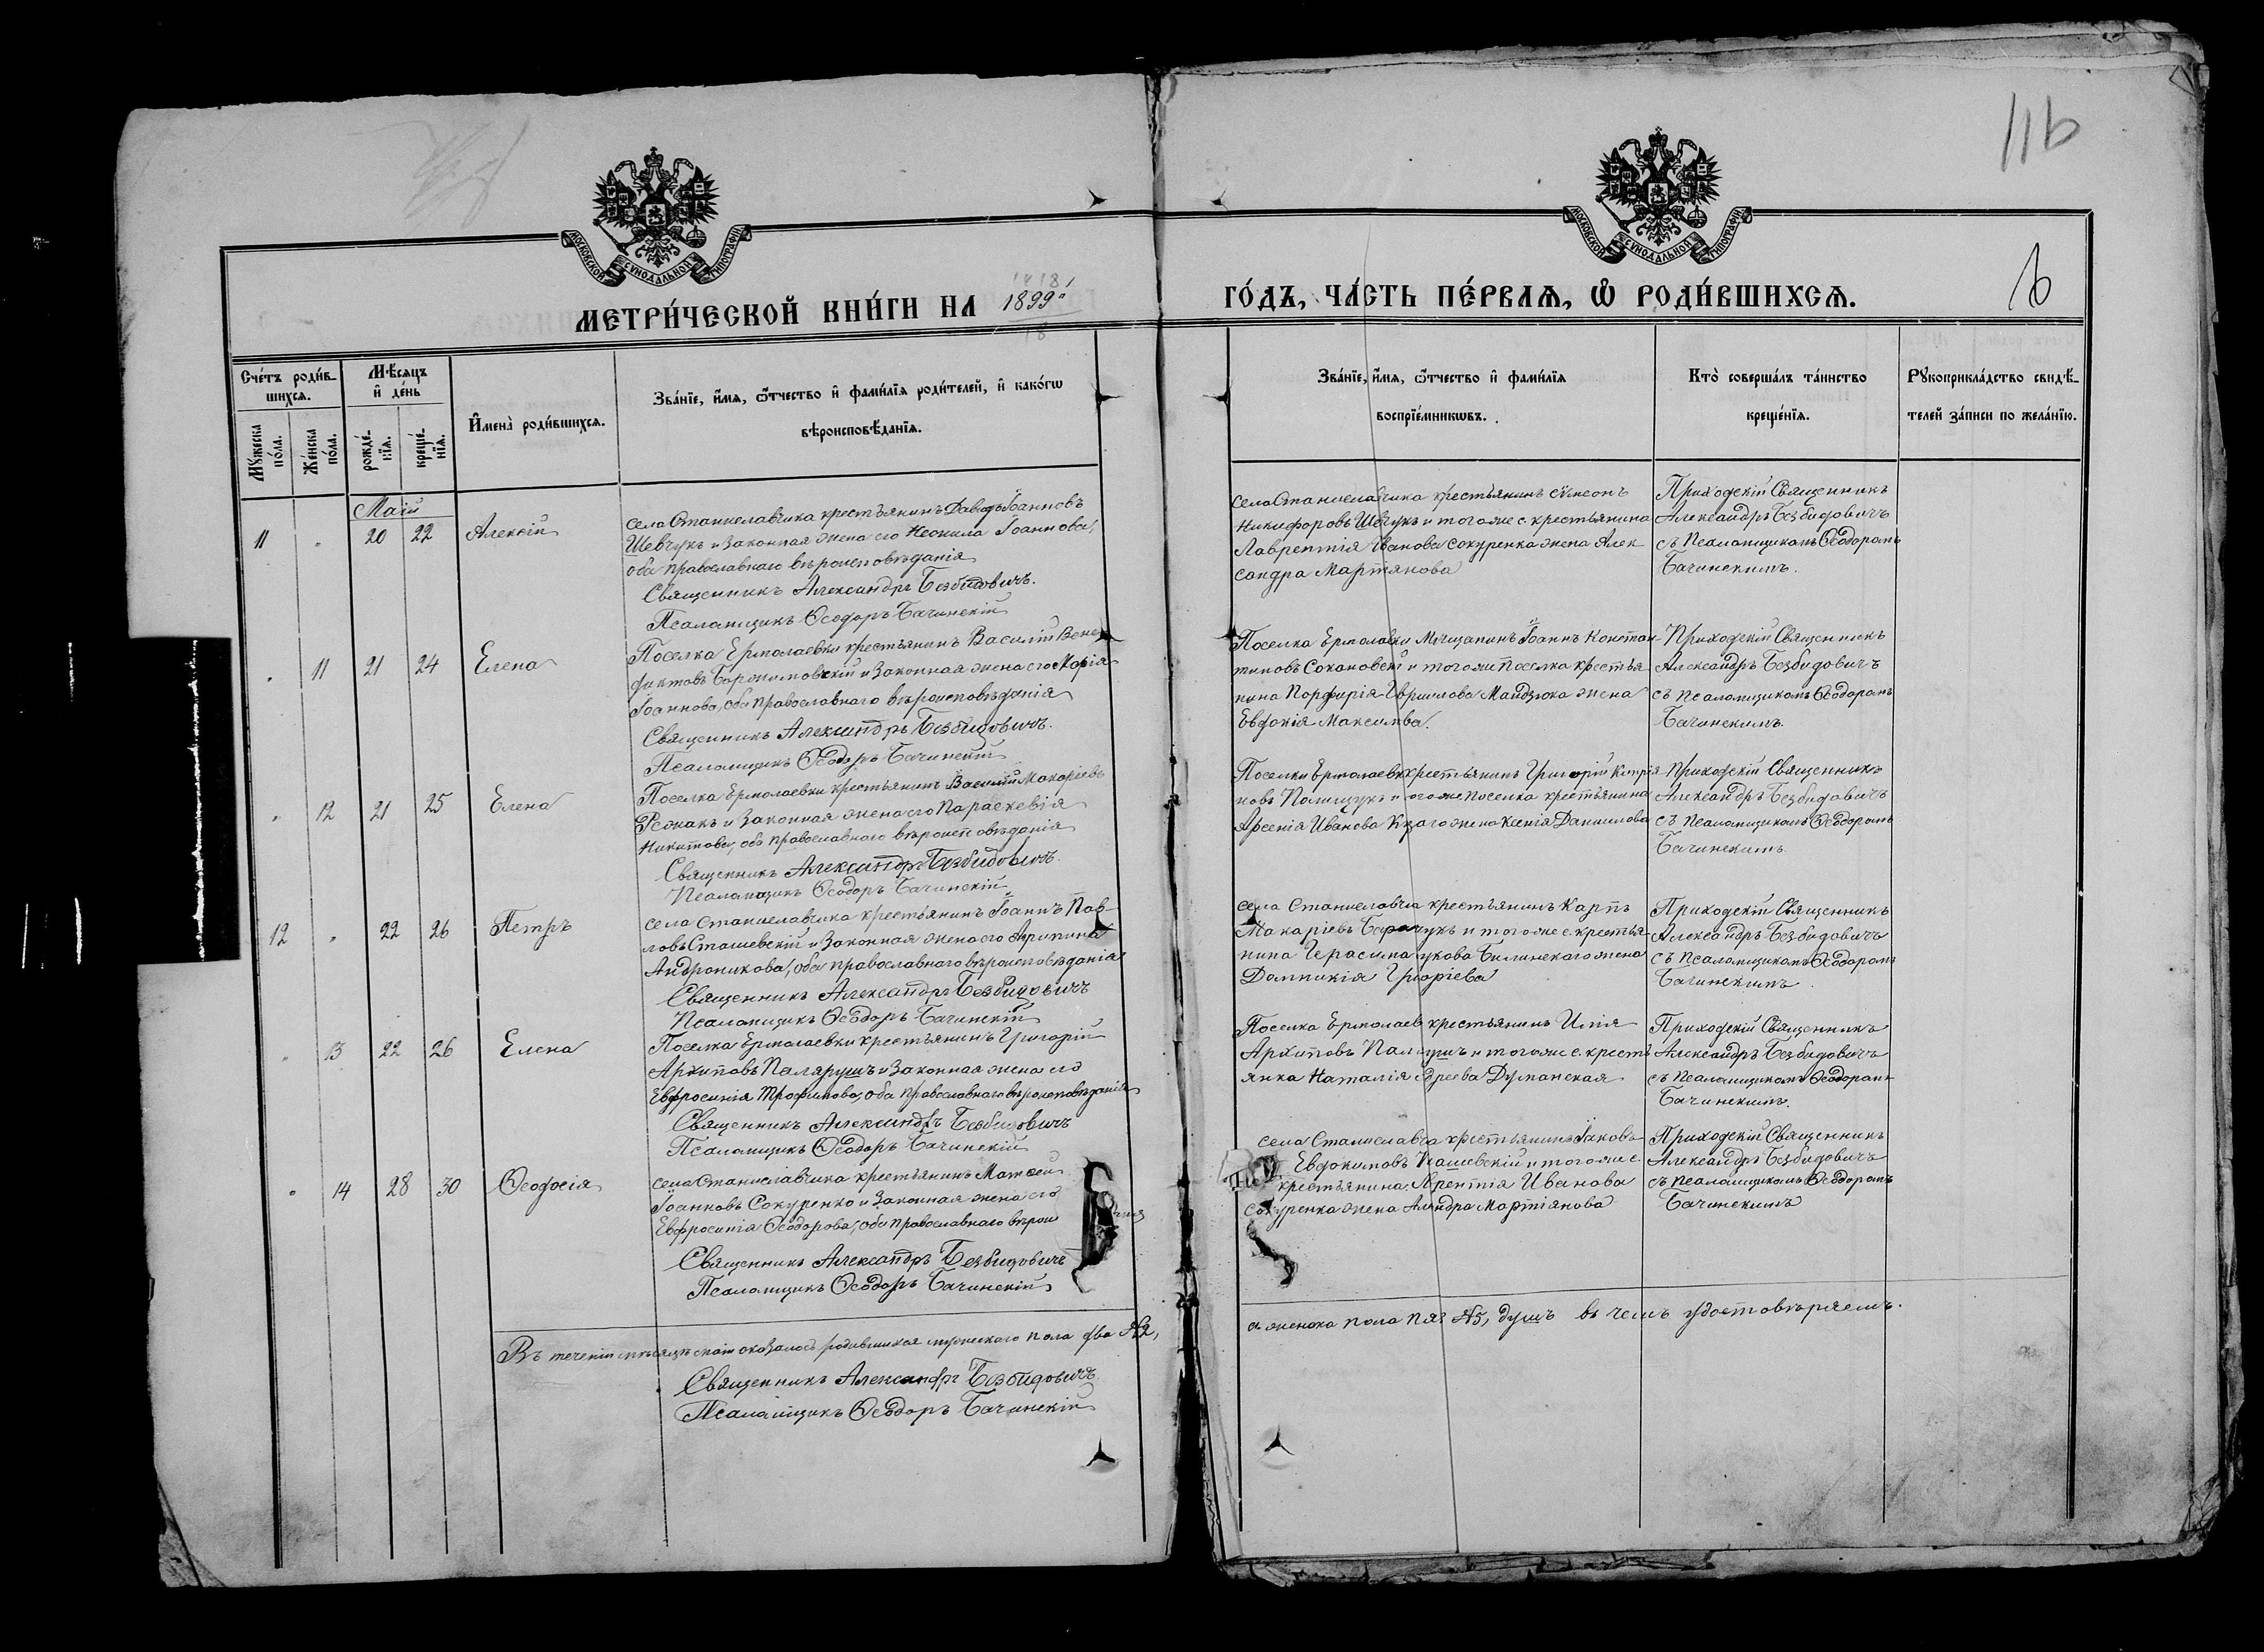 116
6
МОСКОВСКОЙ СѴНОДАЛЬНОЙ ТИПОГРАФІИ
МОСКОВСКОЙ СѴНОДАЛЬНОЙ ТИПОГРАФІИ
МЕТРИ́ЧЕСКОЙ КНИ́ГИ НА 1899
ГО́ДЪ, ЧА́СТЬ ПЕ́РВАЯ, Ѽ РОДИ́ВШИХСЯ.
Сче́тъ роди́в-
шихся.
Мꙋ́жеска
по́ла.
Же́нска
по́ла.
Мѣ́сяцъ
и҆ де́нь
рожде́-
нїя.
креще́-
нїя.
И҆мена̀ роди́вшихся.
Зва́нїе, и҆́мя, ѻ҆́тчество и҆ фами́лїя роди́телей, и҆ како́гѡ
вѣроисповѣ́данїя.
Зва́нїе, и҆́мя, ѻ҆́тчество и҆ фами́лїя
воспрїе́мникѡвъ.
Кто̀ соверша́лъ та́инство
креще́нїя.
Рꙋкоприкла́дство свидѣ́-
телей за́писи по жела́нїю.
Маій
11 " 20 22 Алексій
села Станиславчика крестьянинъ Давидъ Іоанновъ
Шевчукъ и законная жена его Неонила Іоаннова,
оба православнаго вѣроисповѣданія
Священникъ Александръ Безбидовичъ.
Псаломщикъ Ѳеодоръ Бачинскій
села Станиславчика крестьянинъ Сѵмеонъ
Никифоровъ Шевчукъ и тогоже с. крестьянина
Лаврентія Иванова Сокуренка жена Алек
сандра Мартянова
Приходскій Священникъ
Александръ Безбидовичъ
съ Псаломщикомъ Ѳеодоромъ
Бачинскимъ.
" 11 21 24 Елена
Поселка Ермолаевки крестьянинъ Василій Вене-
диктовъ и законная жена его Марія
Іоаннова, оба православнаго вѣроисповѣданія
Священникъ Александръ Безбидовичъ.
Псаломщикъ Ѳеодоръ Бачинскій
Поселка Ермолаевки Мѣщанинъ Іоаннъ Констан-
тиновъ Сохановскій и тогоже поселка крестья
нина Порфирія Гаврилова Мандзюка жена
Евдокія Максимова.
Приходскій Священникъ
Александръ Безбидовичъ
съ Псаломщикомъ Ѳеодоромъ
Бачинскимъ.
" 12 21 25 Елена
Поселка Ермолаевки крестьянинъ Василій Макаріевъ
и законная жена его Параскевія
Никитова, оба православнаго вѣроисповѣданія
Священникъ Александръ Безбидовичъ.
Псаломщикъ Ѳеодоръ Бачинскій
Поселки Ермолаевки крестьянинъ Григорій Кипрія
новъ Полищукъ и тогоже поселка крестьянина
Арсенія Иванова жена Ксенія Данилова
Приходскій Священникъ
Александръ Безбидовичъ
съ Псаломщикомъ Ѳеодоромъ
Бачинскимъ.
12 " 22 26 Петръ
села Станиславчика крестьянинъ Іоаннъ Пав-
ловъ Сташевскій и законная жена его Агрипина
Андроникова, оба православнаго вѣроисповѣданія
Священникъ Александръ Безбидовичъ
Псаломщикъ Ѳеодоръ Бачинскій
села крестьянинъ Карпъ
Макаріевъ и тогоже с. крестья-
нина Герасима Билинскаго жена
Домникія Григоріева
Приходскій Священникъ
Александръ Безбидовичъ
съ Псаломщикомъ Ѳеодоромъ
Бачинскимъ
" 13 22 26 Елена
Поселка Ермолаевки крестьянинъ Григорій
Архиповъ Палярушъ и законная жена его
Евфросинія Трофимова, оба православнаго вѣроисповѣданія
Священникъ Александръ Безбидовичъ
Псаломщикъ Ѳеодоръ Бачинскій
Поселка Ермолаев крестьянинъ Илія
Архиповъ и тогоже с. кресть
янка Наталія Думанская
Приходскій Священникъ
Александръ Безбидовичъ
съ Псаломщикомъ Ѳеодоромъ
Бачинскимъ.
" 14 28 30 Ѳеодосія
села Станиславчика крестьянинъ Матѳей
Іоанновъ Сокуренко и законная жена его
Евфросинія Ѳеодорова, оба православнаго вѣрои
Священникъ Александръ Безбидовичъ
Псаломщикъ Ѳеодоръ Бачинскій
села крестьянинъ Іаковъ
Евдокимовъ и тогоже с.
крестьянина Иванова
жена Мартіянова
Приходскій Священникъ
Александръ Безбидовичъ
съ Псаломщикомъ Ѳеодоромъ
Бачинскимъ
Въ теченіи мѣсяца маія оказалось родившихся мужескаго пола два №2,
а женска пола пят №5, душъ въ чемъ удостовѣряемъ.
Священникъ Александръ Безбидовичъ
Псаломщикъ Ѳеодоръ Бачинскій